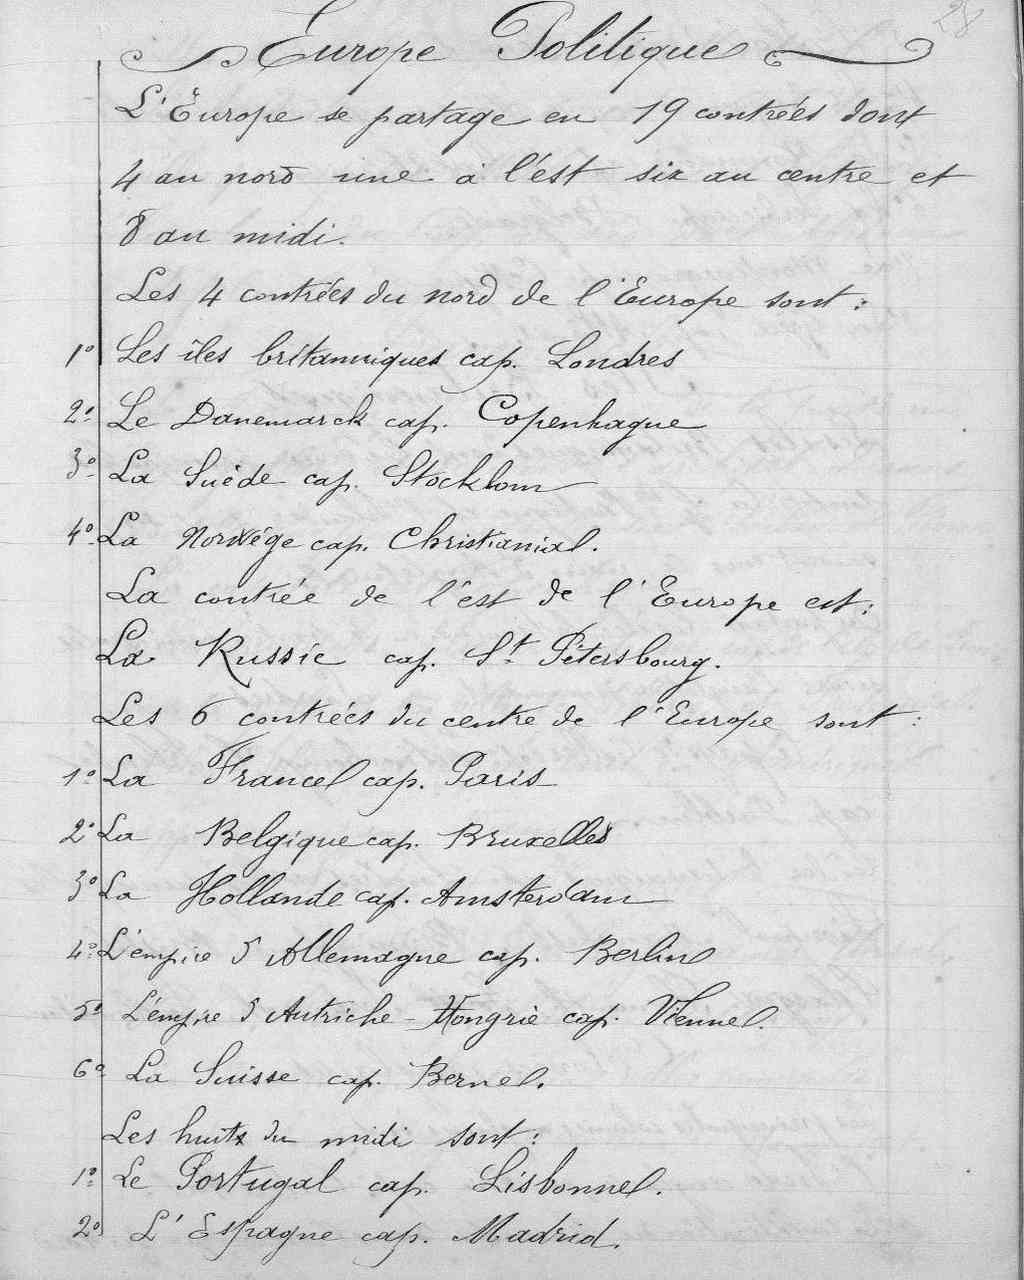 28
Europe Politique
L'Europe se partage en 19 contrées dont
4 au nord une à l'ést six au centre et
8 au midi.
Les 4 contrées du nord de l'Europe sont :
1° Les îles britanniques cap. Londres
2° Le Danemarck cap. Copenhague
3° La Suède cap. Stocklom
4° La Norwège cap. Christiania.
La contrée de l'ést de l'Europe est :
La Russie cap. St Pétersbourg.
Les 6 contrées du centre de l'Europe sont :
1° La France cap. Paris
2° La Belgique cap. Bruxelles
3° La Hollande cap. Amsterdam
4° L'empire d'Allemagne cap. Berlin
5° L'empire d'Autriche-Hongrie cap. Vienne.
6° La Suisse cap. Berne.
Les huits du midi sont :
1° Le Portugal cap. Lisbonne.
2° L'Espagne cap. Madrid.